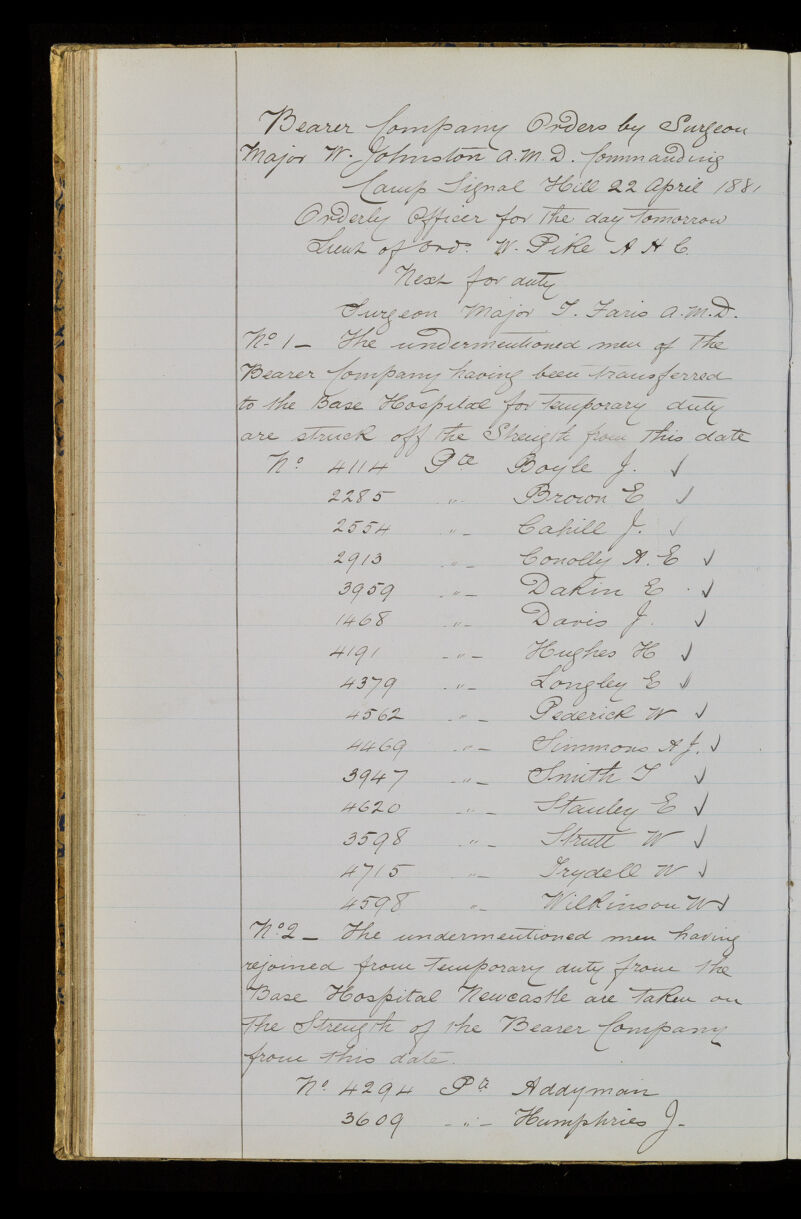 Bearer Company Orders by Surgeon
Major W. Johnston A.M.D. Commanding
Camp Signal Hill 22 April 1881
Orderly Officer for the day tomorrow
Lieut of Ord. W. Pike A H C.
Next for duty
Surgeon Major T. Faris A.M.D.
No 1 - The undermentioned men of the
Bearer Company having been transferred
to the Base Hospital for temporary duty
are struck off the Strength from this date
No. 4114 Pte Boyle J. ✓
2285 " Brown E ✓
2554 " - Cahill J. ✓
2913 - " - Conolly A. E ✓
3959 " - Dakin E ✓
1468 - " - Davis J. ✓
4191 - " - Hughes H ✓
4379 - " - Longley E ✓
4562 - " - Pederick W ✓
4469 - " - Simmons A J. ✓
3947 - " - Smith T ✓
4620 - " - Stanley E ✓
3598 - " - Strutt W ✓
4715 " - Trydell W ✓
4598 " - Wilkinson W ✓
No 2 - The undermentioned men having
rejoined from temporary duty from the
Base Hospital Newcastle are taken on
the Strength of the Bearer Company
from this date.
No. 4294 Pte Addyman
3609 - " - Humphries J -